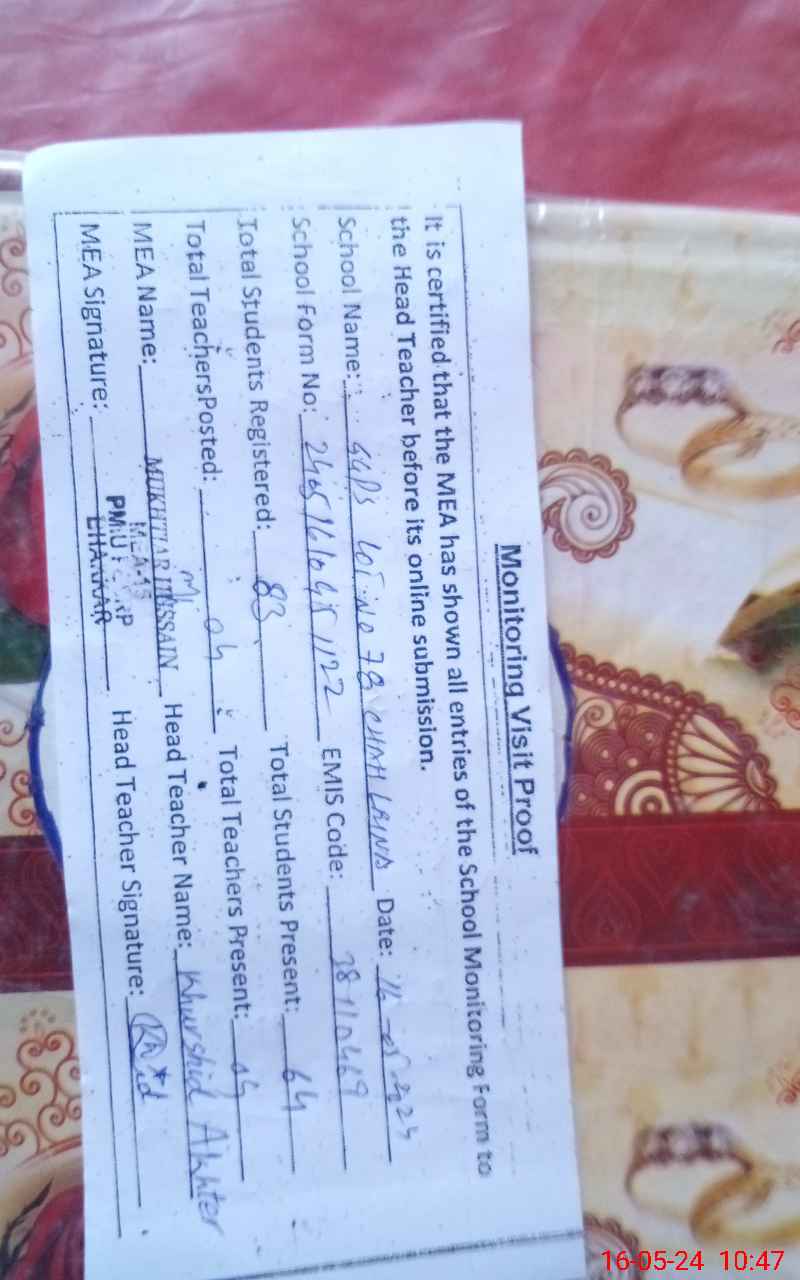 Monitoring Visit Proof
It is certified that the MEA has shown all entries of the School Monitoring Form to
the Head Teacher before its online submission.
School Name: GGPS LOT NO 78 CHAH LAINA Date: 16-05-2024
School Form No: EMIS Code:
Total Students Registered: 83 Total Students Present: 64
Total TeachersPosted: 04 Total Teachers Present: 04
MEA Name: MUKHTIAR HUSSAIN Head Teacher Name: Khurshid Akhter
MEA Signature: Head Teacher Signature:
BHAKKAR
16-05-24 10:47